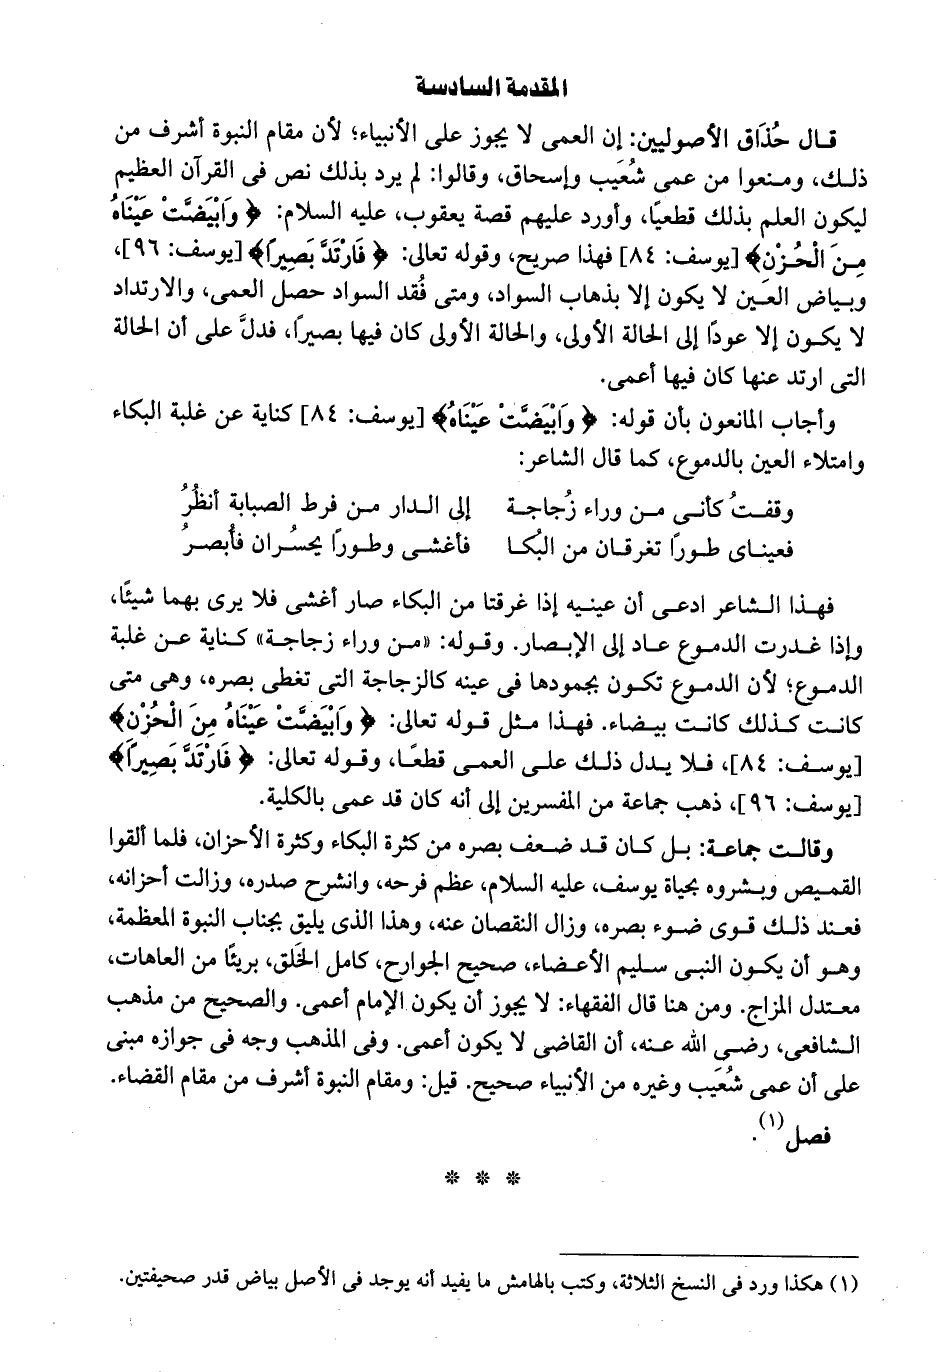 المقدمة السادسة
قال حُذَاق الأصوليين: إن العمى لا يجوز على الأنبياء؛ لأن مقام النبوة أشرف من
ذلك، ومنعوا من عمى شُعَيب وإسحاق، وقالوا: لم يرد بذلك نص فى القرآن العظيم
ليكون العلم بذلك قطعيًا، وأورد عليهم قصة يعقوب، عليه السلام: ﴿وَابْيَضَّتْ عَيْنَاهُ
مِنَ الْحُزْنِ﴾ [يوسف: ٨٤] فهذا صريح، وقوله تعالى: ﴿فَارْتَدَّ بَصِيرًا﴾ [يوسف: ٩٦]،
وبياض العَين لا يكون إلا بذهاب السواد، ومتى فُقد السواد حصل العمى، والارتداد
لا يكون إلا عودًا إلى الحالة الأولى، والحالة الأولى كان فيها بصيرًا، فدلَّ على أن الحالة
التى ارتد عنها كان فيها أعمى.
وأجاب المانعون بأن قوله: ﴿وَابْيَضَّتْ عَيْنَاهُ﴾ [يوسف: ٨٤] كناية عن غلبة البكاء
وامتلاء العين بالدموع، كما قال الشاعر:
وقفتُ كأنى من وراء زُجاجة إلى الدار من فرط الصبابة أنظُرُ
فعيناى طورًا تغرقان من البُكا فأغشى وطورًا يحسُران فأُبصرُ
فهذا الشاعر ادعى أن عينيه إذا غرقتا من البكاء صار أغشى فلا يرى بهما شيئًا،
وإذا غدرت الدموع عاد إلى الإبصار. وقوله: «من وراء زجاجة» كناية عن غلبة
الدموع؛ لأن الدموع تكون بجمودها فى عينه كالزجاجة التى تغطى بصره، وهى متى
كانت كذلك كانت بيضاء. فهذا مثل قوله تعالى: ﴿وَابْيَضَّتْ عَيْنَاهُ مِنَ الْحُزْنِ﴾
[يوسف: ٨٤]، فلا يدل ذلك على العمى قطعًا، وقوله تعالى: ﴿فَارْتَدَّ بَصِيرًا﴾
[يوسف: ٩٦]، ذهب جماعة من المفسرين إلى أنه كان قد عمى بالكلية.
وقالت جماعة: بل كان قد ضعف بصره من كثرة البكاء وكثرة الأحزان، فلما ألقوا
القميص وبشروه بحياة يوسف، عليه السلام، عظم فرحه، وانشرح صدره، وزالت أحزانه،
فعند ذلك قوى ضوء بصره، وزال النقصان عنه، وهذا الذى يليق بجناب النبوة المعظمة،
وهو أن يكون النبى سليم الأعضاء، صحيح الجوارح، كامل الخَلق، بريئًا من العاهات،
معتدل المزاج. ومن هنا قال الفقهاء: لا يجوز أن يكون الإمام أعمى. والصحيح من مذهب
الشافعى، رضى الله عنه، أن القاضى لا يكون أعمى. وفى المذهب وجه فى جوازه مبنى
على أن عمى شُعَيب وغيره من الأنبياء صحيح. قيل: ومقام النبوة أشرف من مقام القضاء.
فصل(١).
* * *
(١) هكذا ورد فى النسخ الثلاثة، وكتب بالهامش ما يفيد أنه يوجد فى الأصل بياض قدر صحيفتين.